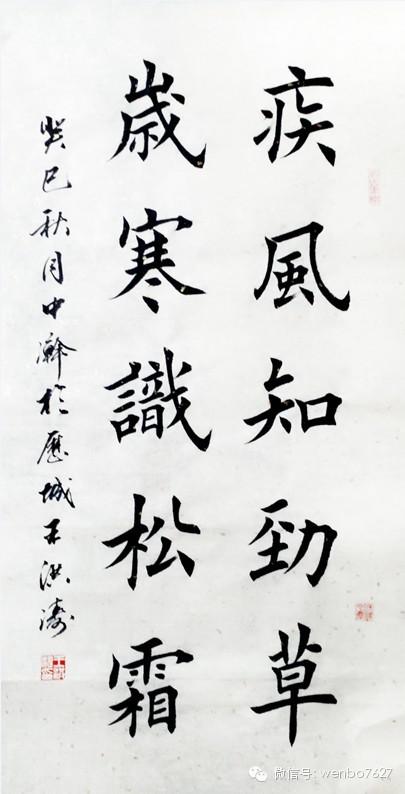 疾風知勁草
嵗寒識松霜
癸巳秋月中澣於歷城王洪濤
微信号: wenbo7627